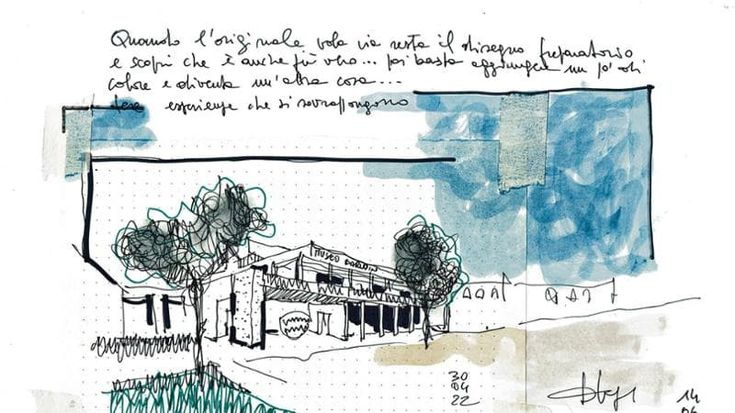 Quando l'originale vola via resta il disegno preparatorio
e scopri che è anche più vero... poi basta aggiungere un po' di
colore e diventa un'altra cosa...
esperienze che si sovrappongono
MUSEO
30
04
22
14